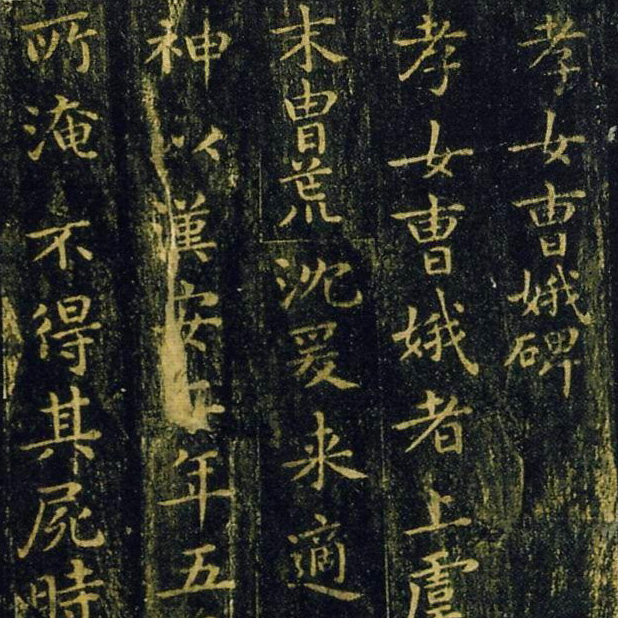 孝女曹娥碑
孝女曹娥者上虞
末胄荒沈爰来適
神以漢安年五
所淹不得其屍時